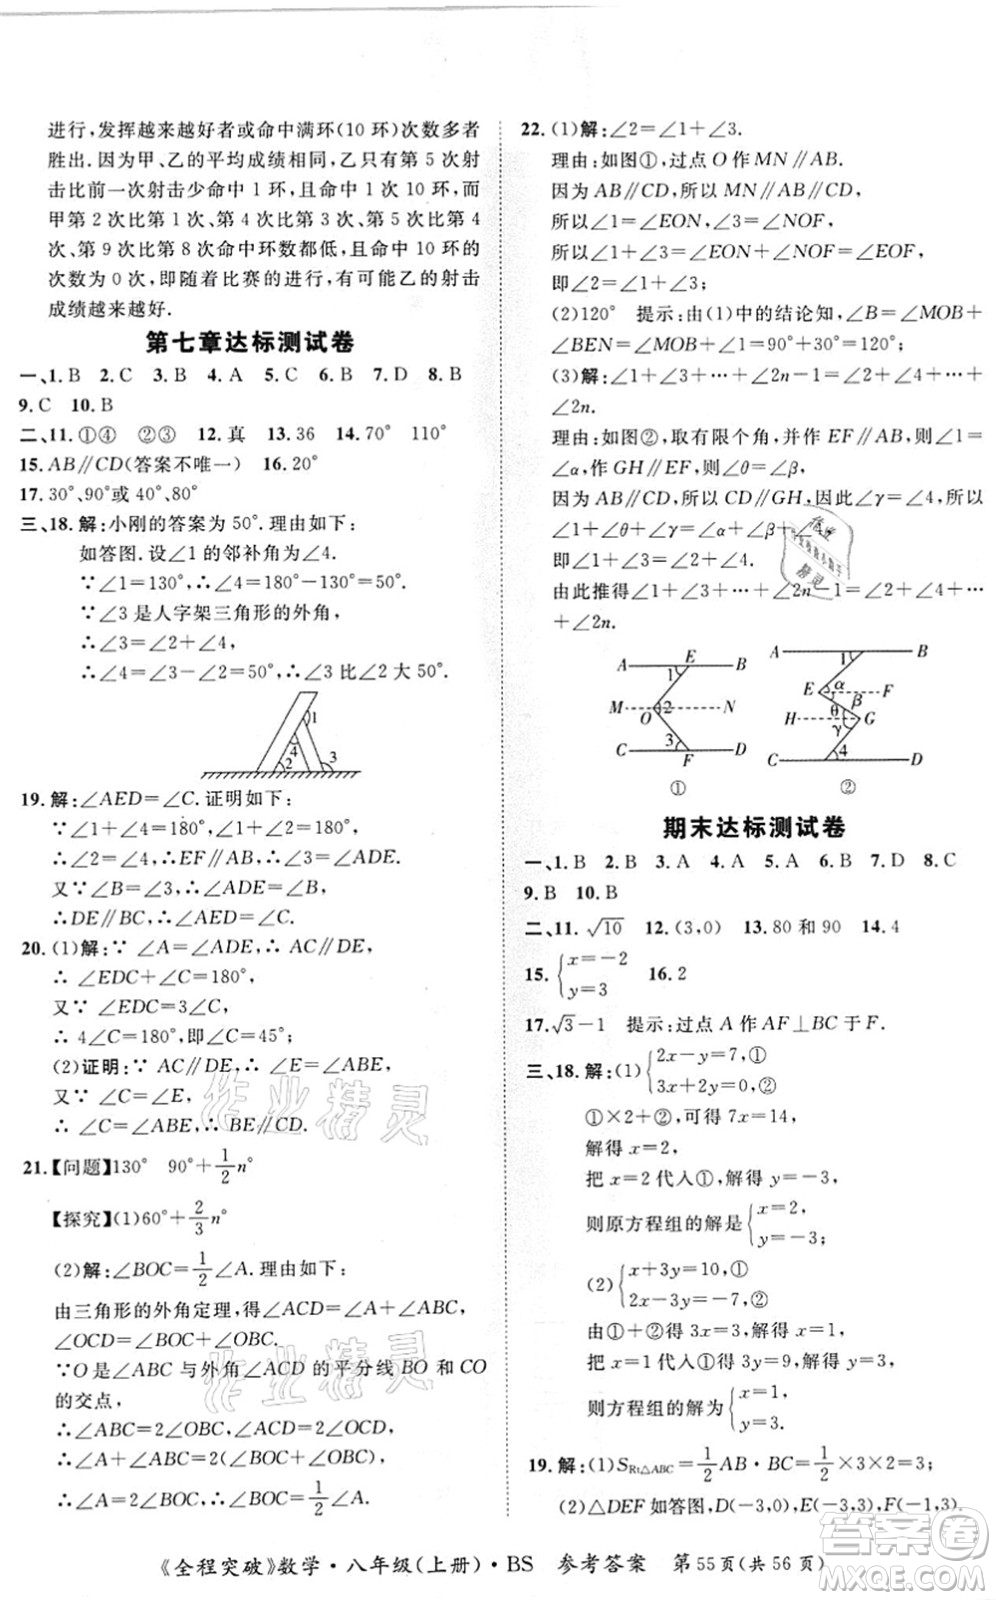 进行,发挥越来越好者或命中满环(10 环)次数多者
胜出. 因为甲、乙的平均成绩相同,乙只有第 5 次射
击比前一次射击少命中 1 环,且命中 1 次 10 环,而
甲第 2 次比第 1 次、第 4 次比第 3 次、第 5 次比第 4
次、第 9 次比第 8 次命中环数都低,且命中 10 环的
次数为 0 次,即随着比赛的进行,有可能乙的射击
成绩越来越好.
第七章达标测试卷
一、1. B 2. C 3. B 4. A 5. C 6. B 7. D 8. B
9. C 10. B
二、11. ①④ ②③ 12. 真 13. 36 14. 70° 110°
15. AB∥CD(答案不唯一) 16. 20°
17. 30°、90°或 40°、80°
三、18. 解:小刚的答案为 50°. 理由如下:
如答图. 设∠1 的邻补角为∠4.
∵∠1=130°,∴∠4=180°-130°=50°,
∵∠3 是人字架三角形的外角,
∴∠3=∠2+∠4,
∴∠4=∠3-∠2=50°,∴∠3 比∠2 大 50°.
1
4
2
3
19. 解:∠AED=∠C. 证明如下:
∵∠1+∠4=180°,∠1+∠2=180°,
∴∠2=∠4,∴EF∥AB,∴∠3=∠ADE.
又∵∠B=∠3,∴∠ADE=∠B,
∴DE∥BC,∴∠AED=∠C.
20. (1)解:∵ ∠A=∠ADE,∴AC∥DE,
∴ ∠EDC+∠C=180°,
又∵ ∠EDC=3∠C,
∴ 4∠C=180°,即∠C=45°;
(2)证明:∵ AC∥DE,∴∠E=∠ABE.
又∵ ∠C=∠E,
∴ ∠C=∠ABE,∴ BE∥CD.
21. 【问题】130° 90°+1/2 n°
【探究】(1)60°+2/3 n°
(2)解:∠BOC=1/2∠A. 理由如下:
由三角形的外角定理,得∠ACD=∠A+∠ABC,
∠OCD=∠BOC+∠OBC.
∵O 是∠ABC 与外角∠ACD 的平分线 BO 和 CO
的交点,
∴∠ABC=2∠OBC,∠ACD=2∠OCD,
∴∠A+∠ABC=2(∠BOC+∠OBC),
∴∠A=2∠BOC,∴∠BOC=1/2∠A.
22. (1)解:∠2=∠1+∠3.
理由:如图①,过点 O 作 MN∥AB.
因为 AB∥CD,所以 MN∥AB∥CD,
所以∠1=∠EON,∠3=∠FON,
所以∠1+∠3=∠EON+∠FON=∠EOF,
即∠2=∠1+∠3;
(2)120° 提示:由(1)中的结论知,∠B=∠MOB+
∠BEN=∠MOB+∠1=90°+30°=120°;
(3)解:∠1+∠3+…+∠2n-1=∠2+∠4+…+
∠2n.
理由:如图②,取有限个角,并作 EF∥AB,则∠1=
∠α,作 GH∥EF,则∠θ=∠β,
因为 AB∥CD,所以 CD∥GH,因此∠γ=∠4,所以
∠1+∠θ+∠γ=∠α+∠β+∠4,
即∠1+∠3=∠2+∠4.
由此推得∠1+∠3+…+∠2n-1=∠2+∠4+…
+∠2n.
A E B
1
M O 2 N
3
C F D
①
A B
E α F
θ β
H γ G
4
C D
②
期末达标测试卷
一、1. B 2. B 3. A 4. A 5. A 6. B 7. D 8. C
9. B 10. B
二、11. √10 12. (3,0) 13. 80 和 90 14. 4
15. {x=-2 y=3 16. 2
17. √3-1 提示:过点 A 作 AF⊥BC 于 F.
三、18. 解:(1){2x-y=7,① 3x+2y=0,②
①×2+②,可得 7x=14,
解得 x=2,
把 x=2 代入①,解得 y=-3,
则原方程组的解是{x=2, y=-3;
(2){x+3y=10,① 2x-3y=-7,②
由①+②,得 3x=3,解得 x=1,
把 x=1 代入①,解得 y=3,
则方程组的解为{x=1, y=3.
19. 解:(1)S Rt△ABC=1/2 AB·BC=1/2×3×2=3;
(2)△DEF 如答图,D(-3,0),E(-3,3),F(-1,3).
《全程突破》数学·八年级(上册)·BS 参考答案 第 55 页(共 56 页)
作业精灵
作业精灵